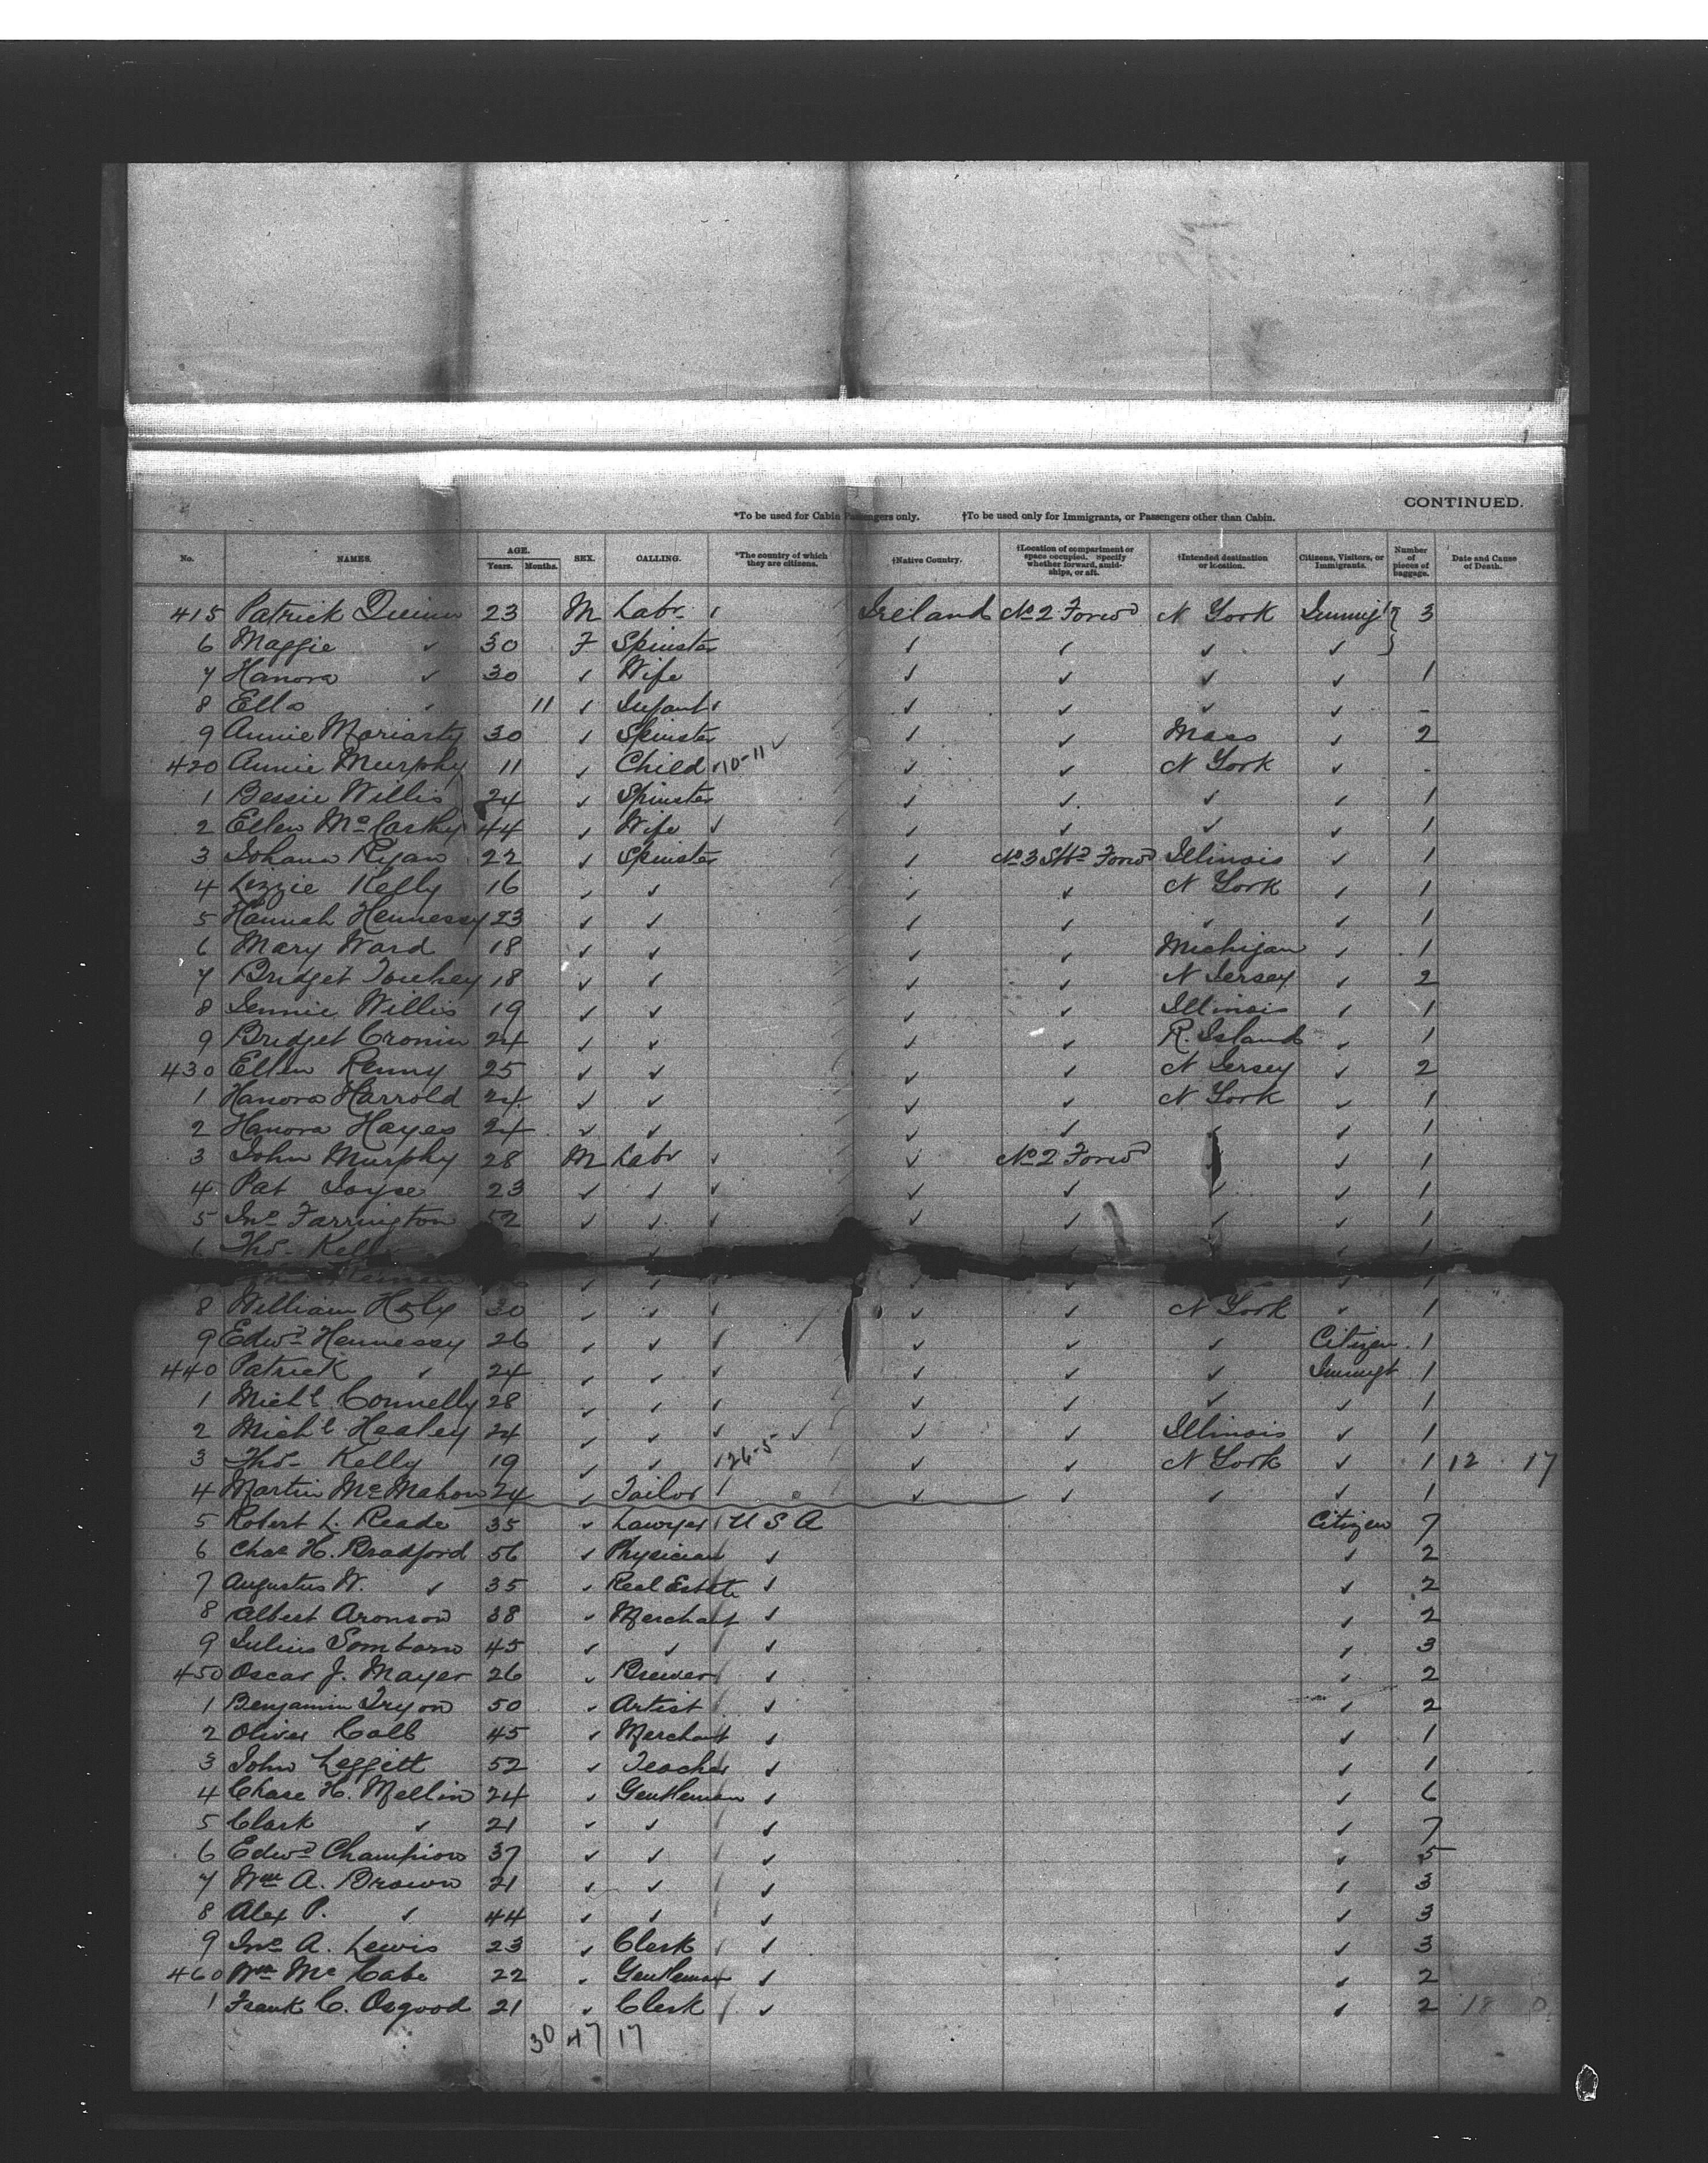 CONTINUED.
*To be used for Cabin Passengers only. †To be used only for Immigrants, or Passengers other than Cabin.
No. NAMES. AGE. Years. Months. SEX. CALLING. *The country of which they are citizens. †Native Country. †Location of compartment or space occupied. Specify whether forward, amidships, or aft. †Intended destination or location. Citizens, Visitors, or Immigrants. Number of pieces of baggage. Date and Cause of Death.
415 Patrick Quinn 23 M Labr Ireland No 2 Forwd N York Immigt 3
6 Maggie ✓ 30 F Spinster ✓ ✓ ✓ ✓
7 Hanora ✓ 30 ✓ Wife ✓ ✓ ✓ ✓ 1
8 Ella ✓ 11 ✓ Infant ✓ ✓ ✓ ✓ -
9 Annie Moriarty 30 ✓ Spinster ✓ ✓ Mass ✓ 2
420 Annie Murphy 11 ✓ Child 10-11 ✓ ✓ ✓ N York ✓ -
1 Bessie Willis 24 ✓ Spinster ✓ ✓ ✓ ✓ 1
2 Ellen McCarthy 44 ✓ Wife ✓ ✓ ✓ ✓ ✓ 1
3 Johana Ryan 22 ✓ Spinster ✓ No 3 Forwd Illinois ✓ 1
4 Lizzie Kelly 16 ✓ ✓ ✓ ✓ N York ✓ 1
5 Hannah Hennessy 23 ✓ ✓ ✓ ✓ ✓ ✓ 1
6 Mary Ward 18 ✓ ✓ ✓ ✓ Michigan ✓ 1
7 Bridget Touhey 18 ✓ ✓ ✓ ✓ N Jersey ✓ 2
8 Jennie Willis 19 ✓ ✓ ✓ ✓ Illinois ✓ 1
9 Bridget Cronin 24 ✓ ✓ ✓ ✓ R. Island ✓ 1
430 Ellen Renny 25 ✓ ✓ ✓ ✓ N Jersey ✓ 2
1 Hanora Harrold 24 ✓ ✓ ✓ ✓ N York ✓ 1
2 Hanora Hayes 24 ✓ ✓ ✓ ✓ ✓ ✓ 1
3 John Murphy 28 M Labr ✓ ✓ No 2 Forwd ✓ ✓ 1
4 Pat Joyce 23 ✓ ✓ ✓ ✓ ✓ ✓ ✓ 1
5 Jno Farrington 52 ✓ ✓ ✓ ✓ ✓ ✓ ✓ 1
6 Thos Kelly ✓ ✓ ✓ ✓ 1
✓ ✓ ✓ ✓ ✓ ✓ 1
8 William Holy 30 ✓ ✓ ✓ ✓ ✓ N York ✓ 1
9 Edwd Hennessy 26 ✓ ✓ ✓ ✓ ✓ ✓ Citizen 1
440 Patrick ✓ 24 ✓ ✓ ✓ ✓ ✓ ✓ Immigt 1
1 Michl Connelly 28 ✓ ✓ ✓ ✓ ✓ ✓ ✓ 1
2 Michl Healey 24 ✓ ✓ ✓ ✓ ✓ Illinois ✓ 1
3 Thos Kelly 19 ✓ ✓ 26-5 ✓ ✓ ✓ N York ✓ 1 12 17
4 Martin McMahon 24 ✓ Tailor ✓ ✓ ✓ ✓ 1
5 Robert L. Reade 35 ✓ Lawyer U S A Citizen 7
6 Chas H. Bradford 56 ✓ Physician ✓ ✓ 2
7 Augustus W. ✓ 35 ✓ Real Estate ✓ ✓ 2
8 Albert Aronson 38 ✓ Merchant ✓ ✓ 2
9 Julius Somborn 45 ✓ ✓ ✓ ✓ 3
450 Oscar J. Mayer 26 ✓ Brewer ✓ ✓ 2
1 Benjamin Tryon 50 ✓ Artist ✓ ✓ 2
2 Oliver Colb 45 ✓ Merchant ✓ ✓ 1
3 John Leggett 52 ✓ Teacher ✓ ✓ 1
4 Chase H. Mellin 24 ✓ Gentleman ✓ ✓ 6
5 Clark ✓ 21 ✓ ✓ ✓ ✓ 7
6 Edwd Champion 37 ✓ ✓ ✓ ✓ 5
7 Wm A. Brown 21 ✓ ✓ ✓ ✓ 3
8 Alex P. ✓ 44 ✓ ✓ ✓ ✓ 3
9 Jno A. Lewis 23 ✓ Clerk ✓ ✓ 3
460 Wm McCabe 22 ✓ Gentleman ✓ ✓ 2
1 Frank C. Osgood 21 ✓ Clerk ✓ ✓ 2 18 0
30 47 17